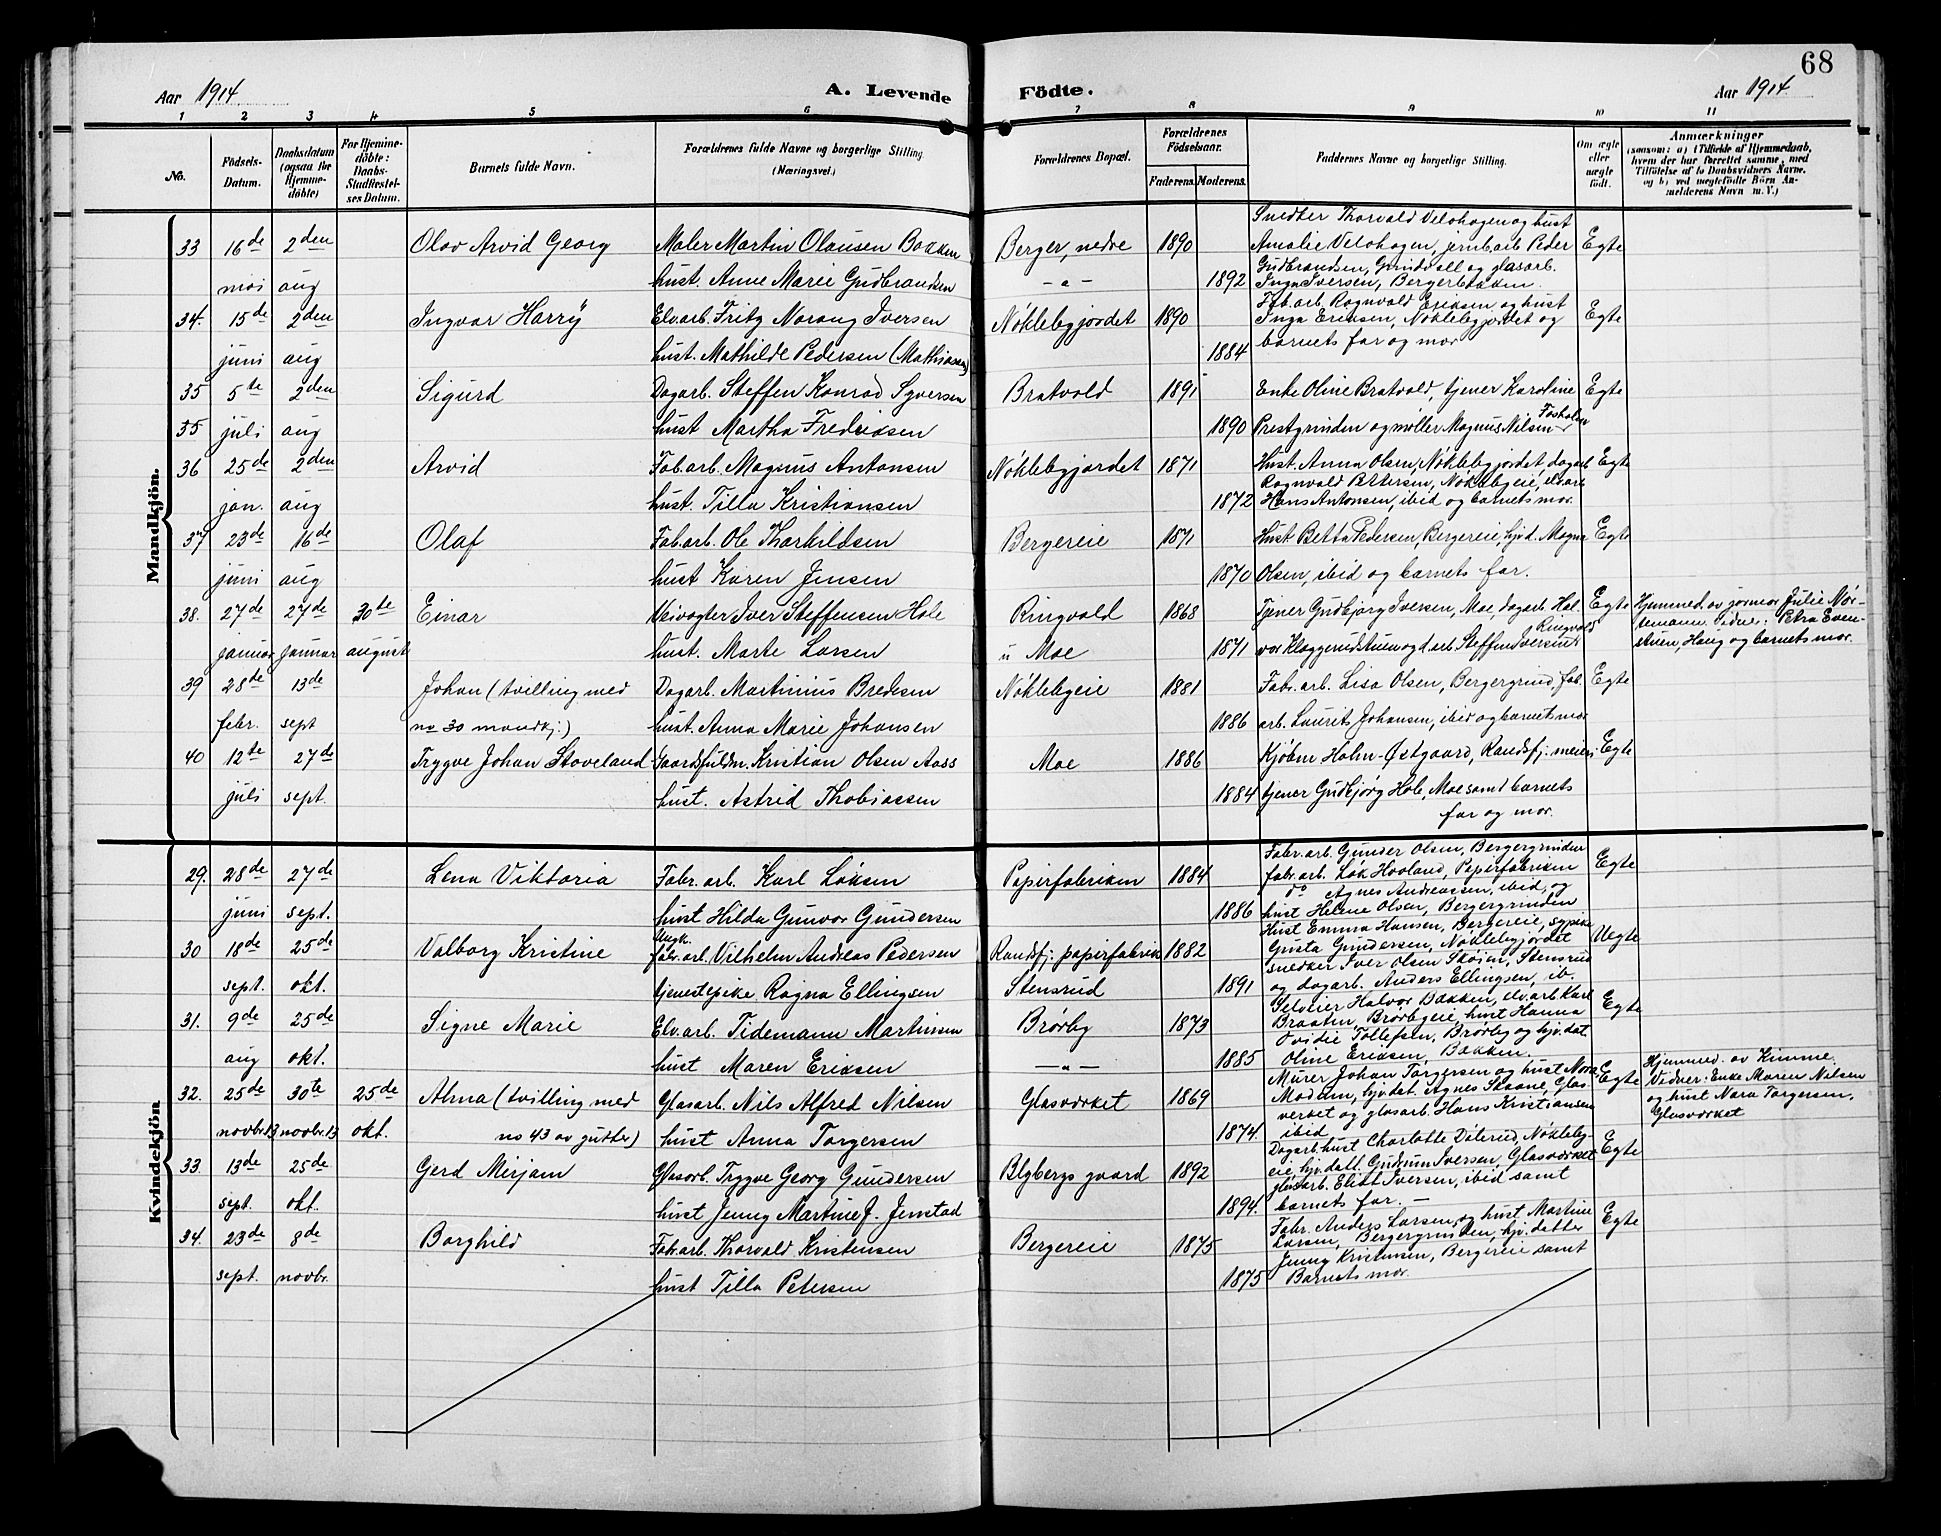 68
Aar 1914
A. Levende Födte.
Aar 1914
1 2 3 4 5 6 7 8 9 10 11
No.
Födsels-Datum.
Daabsdatum (ogsaa for Hjemme-döbte)
For Hjemme-döbte: Daabs-Stadfæstel-ses Datum.
Barnets fulde Navn.
Forældrenes fulde Navne og borgerlige Stilling (Næringsvei.)
Forældrenes Bopæl.
Forældrenes Födselsaar.
Faderens. Moderens.
Faddernes Navne og borgerlige Stilling.
Om ægte eller uægte födt.
Anmærkninger
(saasom: a) i Tilfælde af Hjemmedaab, hvem der har forrettet samme, med Tilföielse af to Daabsvidners Navne, og b) ved uægtefödte Börn An-melderens Navn m. V.)
Mandkjön.
33 16de mai 2den aug Olav Arvid Georg
Maler Martin Olausen Bakken
hust. Anne Marie Gudbrandsen
Berger, nedre 1890
— " — 1892
Snedker Thorvald Velohagen og hust
Amalie Velohagen, jernb.arb Peder
Gudbrandsen, Grindvoll og glasarb.
Inga Iversen, Bergerbakken.
Egte
34. 15de juni 2den aug Ingvar Harry
Elv.arb. Fritz Norang Iversen
hust. Mathilde Pedersen (Mathiasen)
Nøklebygjordet 1890
1884
Fab.arb. Ragnvald Eriksen og hust
Inga Eriksen, Nøklebygjordet og
barnets far og mor
Egte
35 5te juli 2den aug Sigurd
35
Dagarb. Steffen Konrad Syversen
hust Martha Fredriksen
Bratvold 1891
1890
Enke Oline Bratvold, tjener Karoline
Prestgrinden og møller Magnus Nilsen
Egte
36 25de jan. 2den aug Arvid
Fab.arb. Magnus Antonsen
hust. Tilla Kristiansen
Nøklebygjordet 1871
1872
Hust. Anna Olsen, Nøklebygjordet, dagarb
Ragnvald Pettersen, Nøklebyeie, elvarb
Hans Antonsen, ibid og barnets mor.
Egte
37 23de juni 16de aug Olaf
Fab.arb. Ole Thorkildsen
hust Karen Jensen
Bergereie 1871
1870
Hust Betta Pedersen, Bergereie, hjv.d. Magna
Olsen, ibid og barnets far.
Egte
38. 27de januar 27de januar 30te august Einar
Skivogter Iver Steffensen Hole
hust. Marte Larsen
Ringvold 1868
u Moe 1871
Tjener Gudbjørg Iversen, Moe, dagarb. Hal-
Ringvold
vor Klæggerudstuen og d.arb Steffen Iversen
Egte
Hjemmed. av jormor Julie Nor-
stemann. Vidner: Petra Even-
stuen, Haug og barnets mor.
39 28de febr. 13de sept Johan (tvilling med
no 30 mandkj.)
Dagarb. Martinius Bredesen
hust. Anna Marie Johansen
Nøklebyeie 1881
1886
Fabr. arb. Lisa Olsen, Bergergrind, fab.
arb. Laurits Johansen, ibid og barnets mor
Egte
40 12te juli 27de sept. Trygve Johan Stoveland
Gaardsfuldm. Kristian Olsen Aass
hust. Astrid Thobiassen
Moe 1886
1884
Kjøbm Hahn-Østgaard, Randsfj. meieri
tjener Gudbjørg Hole, Moe samt barnets
far og mor.
Egte
Kvindekjön
29. 28de juni 27de sept. Lena Viktoria
Fabr. arb. Karl Løksen
hust Hilda Gunvor Gundersen
Papirfabriken 1884
1886
Fabr. arb. Gunder Olsen, Bergergrinden
fabr. arb. Løk Hovland, Papirfabriken
do Agnes Andreassen, ibid, og
hust Helene Olsen, Bergergrinden
Egte
30 18de sept. 25de okt. Valborg Kristine
Ungk.
fabr. arb. Vilhelm Andreas Pedersen
tjenestepike Ragna Ellingsen
Randsfj. papirfabrik 1882
Stensrud 1891
Hust Emma Hansen, Bergereie, sypike
Gusta Gundersen, Nøklebygjordet
snedker Iver Olsen Skøien, Stensrud
og dagarb. Anders Ellingsen, ib.
Uegte
31. 9de aug 25de okt. Signe Marie
Elv.arb. Tidemann Martinsen
hust Maren Eriksen
Brørby 1873
— " — 1885
Selveier Halvor Bakken, elv.arb Karl
Braaten, Brørbyeie, hust Hanna
Ovidie Tollefsen, Brørby og hjv.dat.
Oline Eriksen, Bakken.
Egte
32. 25de novbr. 13 30te novbr. 13 25de okt. Alma (tvilling med
no 43 av gutter)
Glasarb. Nils Alfred Nilsen
hust Anna Torgersen
Glasværket 1869
1874.
Murer Johan Torgersen og hust Nora
Modum, hjv.dat. Agnes Skaane, Glas-
verket og glasarb. Hans Kristiansen
ibid
Egte
Hjemmed. av Kimme.
Vidner: Enke Maren Nilsen
og hust Nora Torgersen,
Glasværket
33. 13de sept. 25de okt. Gerd Mirjam
Glasarb. Trygve Georg Gundersen
hust Jenny Martine J. Jenstad
Blybergs gaard 1892
1894.
Dagarb.hust Charlotte Dølerud, Nøkleby-
eie, hjv.datt. Gudrun Iversen, Glasværket
glasarb. Eliot Iversen, ibid samt
barnets far. —
Egte
34. 23de sept. 8de novbr. Borghild
Fab.arb. Thorvald Kristensen
hust Tilla Petersen
Bergereie 1875
1875
Fabr. Anders Larsen og hust Martine
Larsen, Bergergrinden, hjv. datter
Jenny Kristensen, Bergereie samt
Barnets mor.
Egte